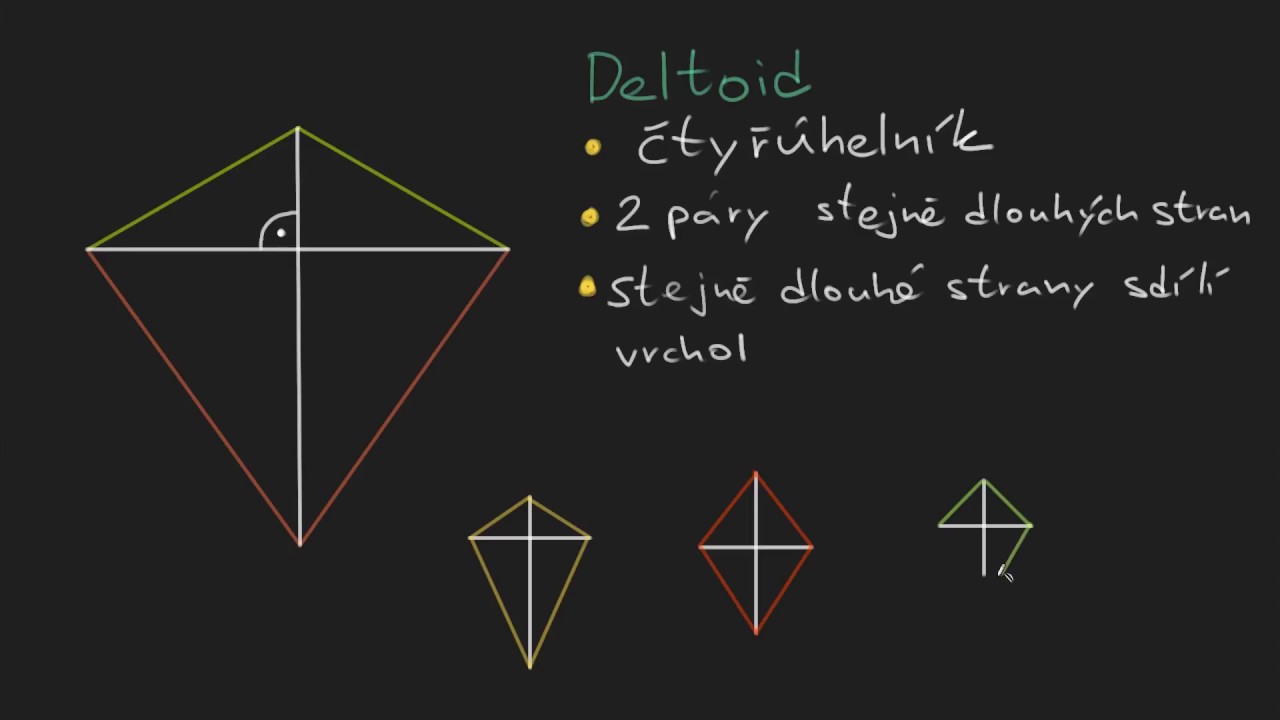 Deltoid
• čtyřúhelník
• 2 páry stejně dlouhých stran
• stejně dlouhé strany sdílí
vrchol